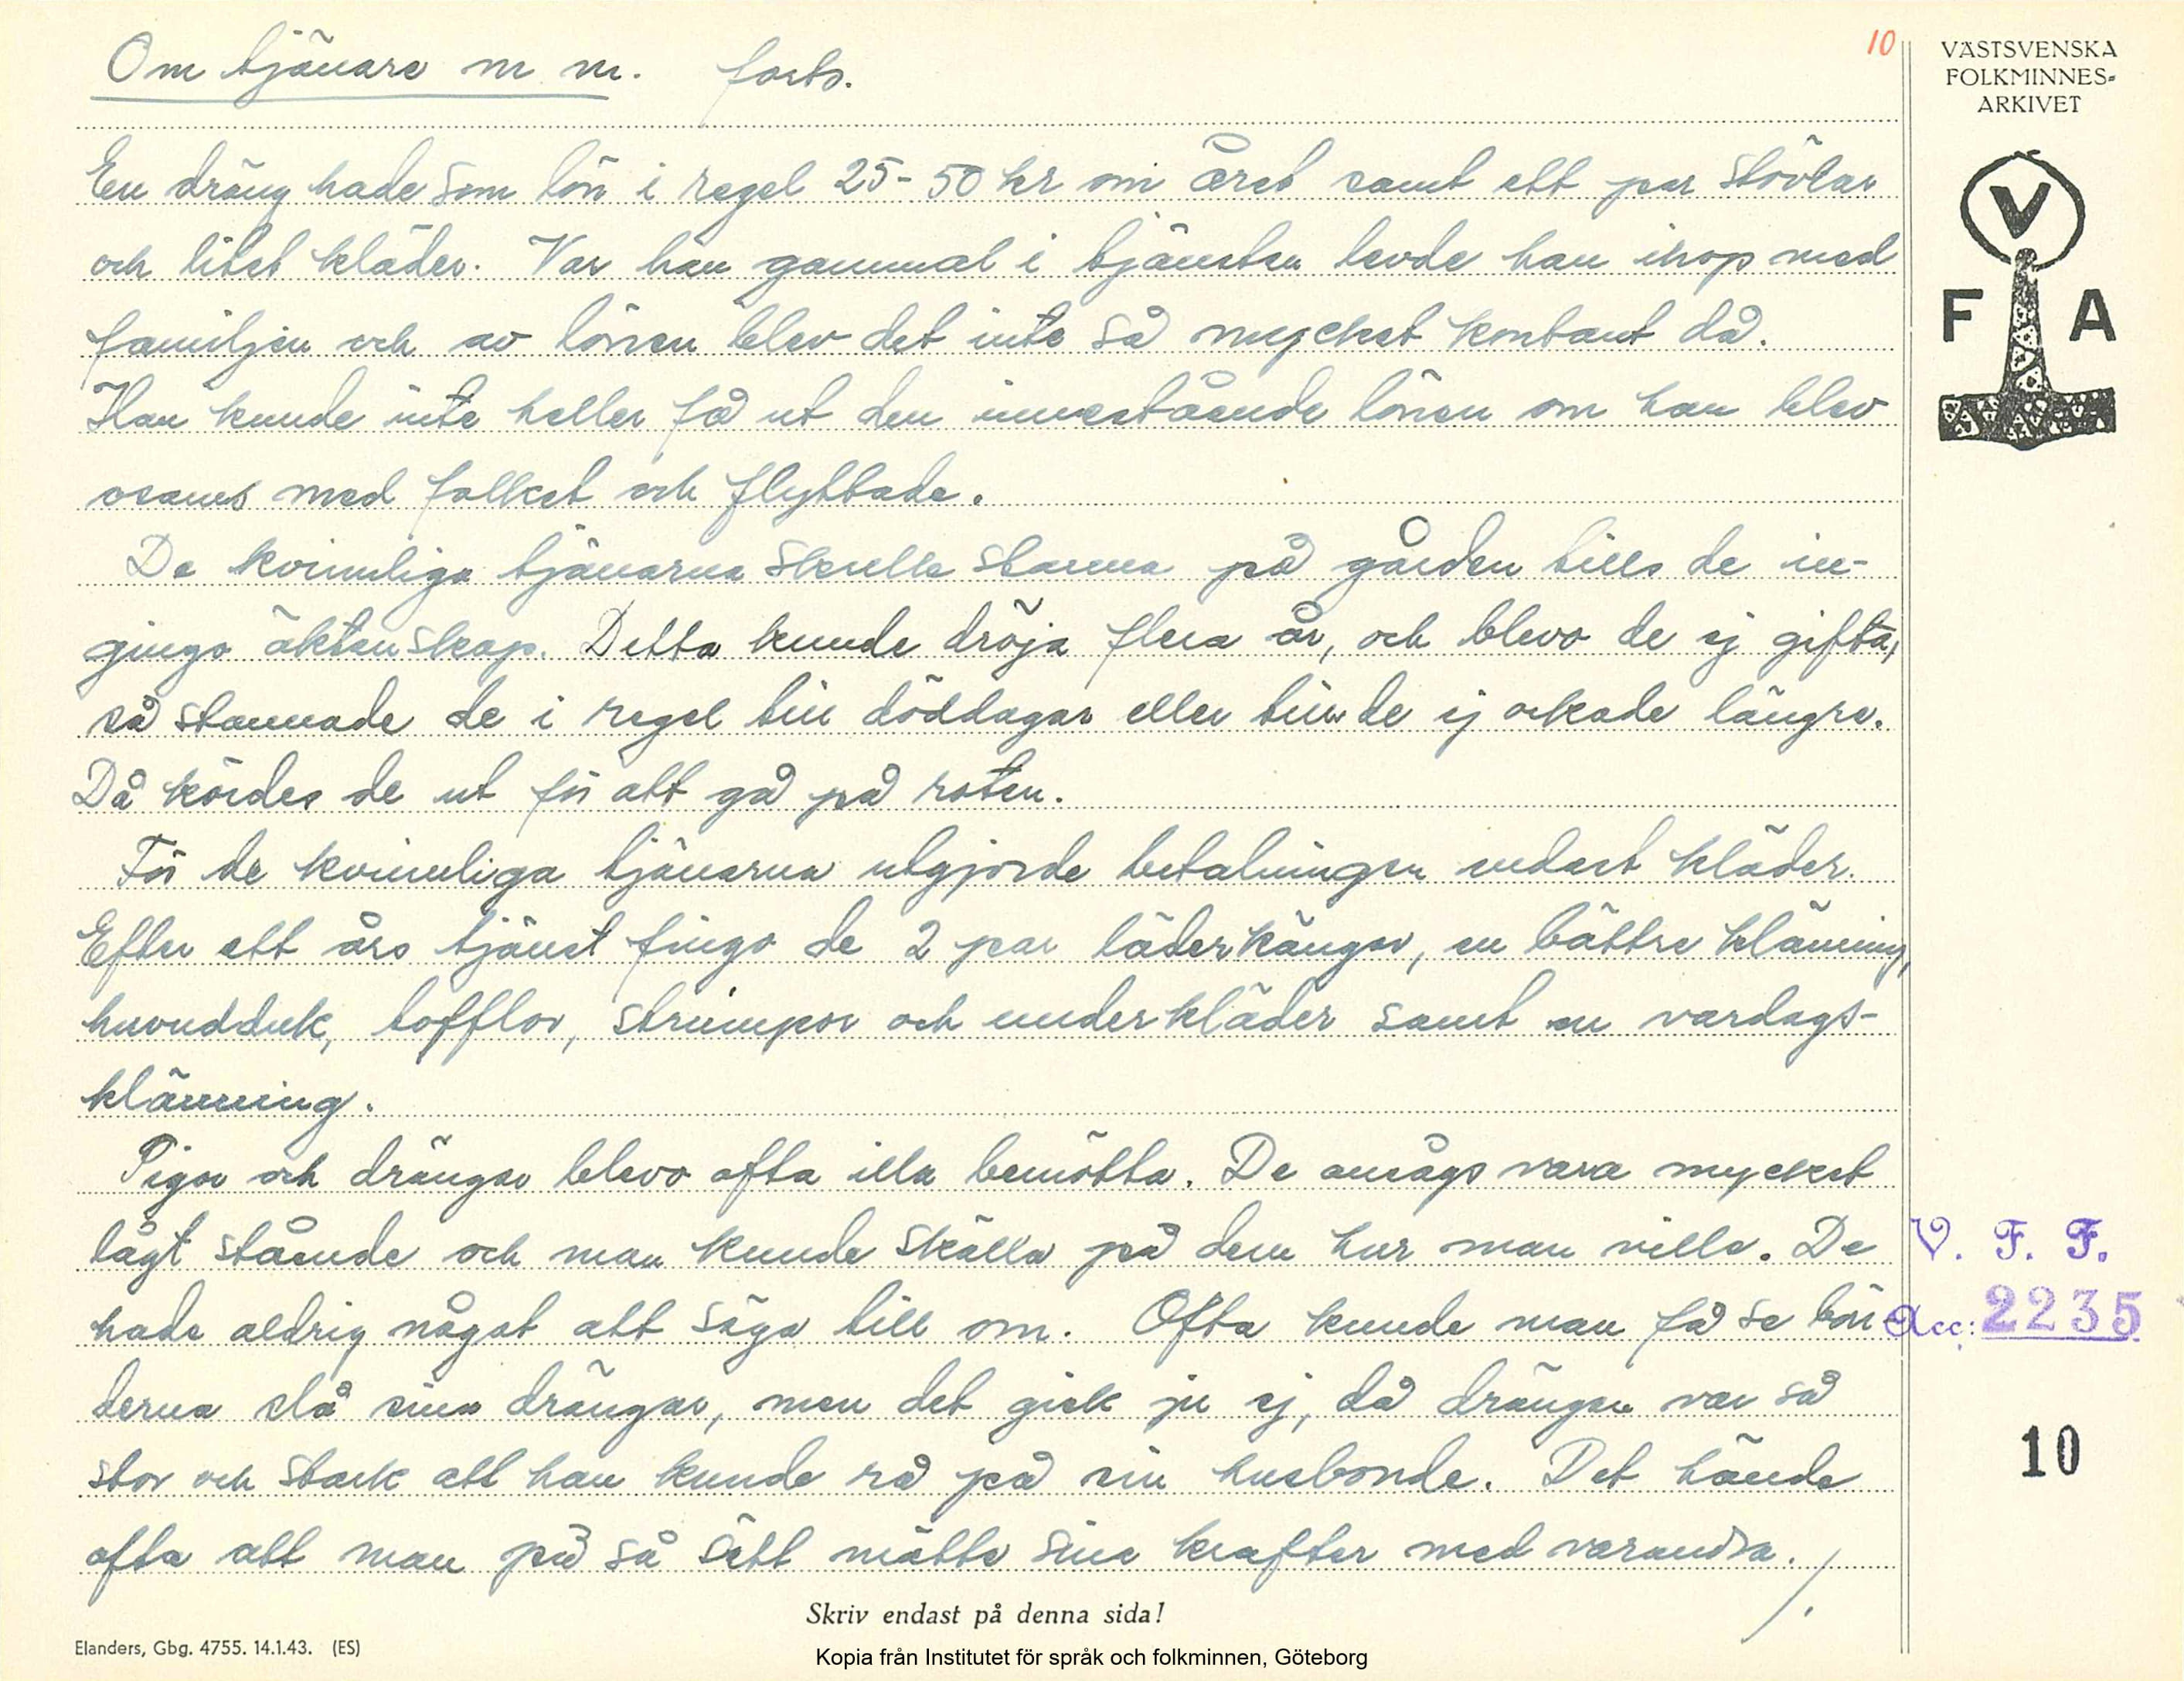 Om tjänare m m. forts.
10
VÄSTSVENSKA
FOLKMINNES-
ARKIVET
V
F A
En dräng hade som lön i regel 25-50 kr om året samt ett par stövlar
och litet kläder. Var han gammal i tjänsten levde han ihop med
familjen och av lönen blev det inte så mycket kontant då.
Han kunde inte heller få ut den innestående lönen om han blev
osams med folket och flyttade.
De kvinnliga tjänarna skulle stanna på gården tills de in-
gingo äktenskap. Detta kunde dröja flera år, och blevo de ej gifta,
så stannade de i regel till döddagar eller till de ej orkade längre.
Då kördes de ut för att gå på roten.
För de kvinnliga tjänarna utgjorde betalningen endast kläder.
Efter ett års tjänst fingo de 2 par läderkängor, en bättre klänning,
huvudduk, tofflor, strumpor och underkläder samt en vardags-
klänning.
Pigor och drängar blevo ofta illa bemötta. De ansågs vara mycket
lågt stående och man kunde skälla på dem hur man ville. De
hade aldrig något att säga till om. Ofta kunde man få se bön-
derna slå sina drängar, men det gick ju ej, då drängen var så
stor och stark att han kunde rå på sin husbonde. Det hände
ofta att man på så sätt mätte sina krafter med varandra. /.
V. F. F.
Acc: 2235
10
Skriv endast på denna sida!
Elanders, Gbg. 4755. 14.1.43. (ES)
Kopia från Institutet för språk och folkminnen, Göteborg